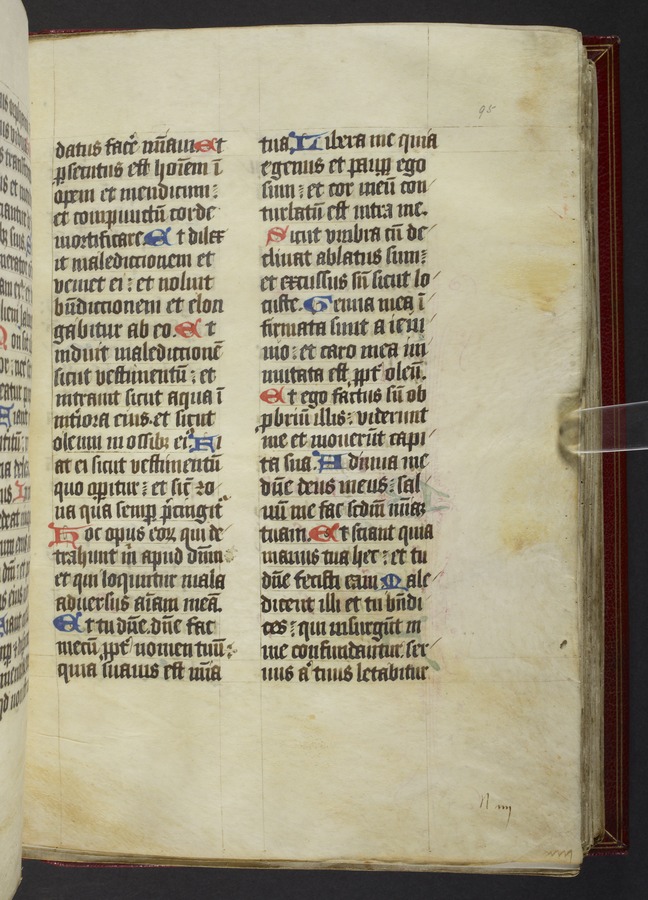 95
datus facē mīam. Et
ꝑsecutus est hoīem ī
opem et mendicum:
et compunctū corde
mortificare. Et dilex
it maledictionem et
veniet ei: et noluit
bn̄dictionem et elon
gabitur ab eo. Et
induit maledictionē
sicut vestimentū: et
intrauit sicut aqua ī
int̄iora eius. et sicut
oleum in ossibꝫ eiꝰ. Fi
at ei sicut vestimentū
quo oꝑitur: et sic̄ zo
na qua semꝑ p̄cingit᷑
Hoc opus eoꝝ qui de
trahunt m̄ apud dūm:
et qui loquntur mala
aduersus aīam meā.
Et tu dn̄e. dn̄e fac
mecū ꝓpt̄ nomen tuū:
quia suauis est mīa
tua. Libera me quia
egenus et pauꝑ ego
sum: et cor meū con
turbatū est intra me.
Sicut vmbra cū de
clinat ablatus sum:
et excussus sū sicut lo
custe. Genua mea ī
firmata sunt a ieiu
nio: et caro mea im
mutata est ꝓpt̄ oleū.
Et ego factus sū ob
ꝓbriū illis: viderunt
me et mouerūt capi
ta sua. Adiuua me
dn̄e deus meus: sal
uū me fac scd̄m mīaꝫ
tuam. Et sciant quia
manus tua hec: et tu
dn̄e fecisti eam. Male
dicent illi et tu bn̄di
ces: qui insurgūt in
me confundantur. ser
uus aūt tuus letabitur